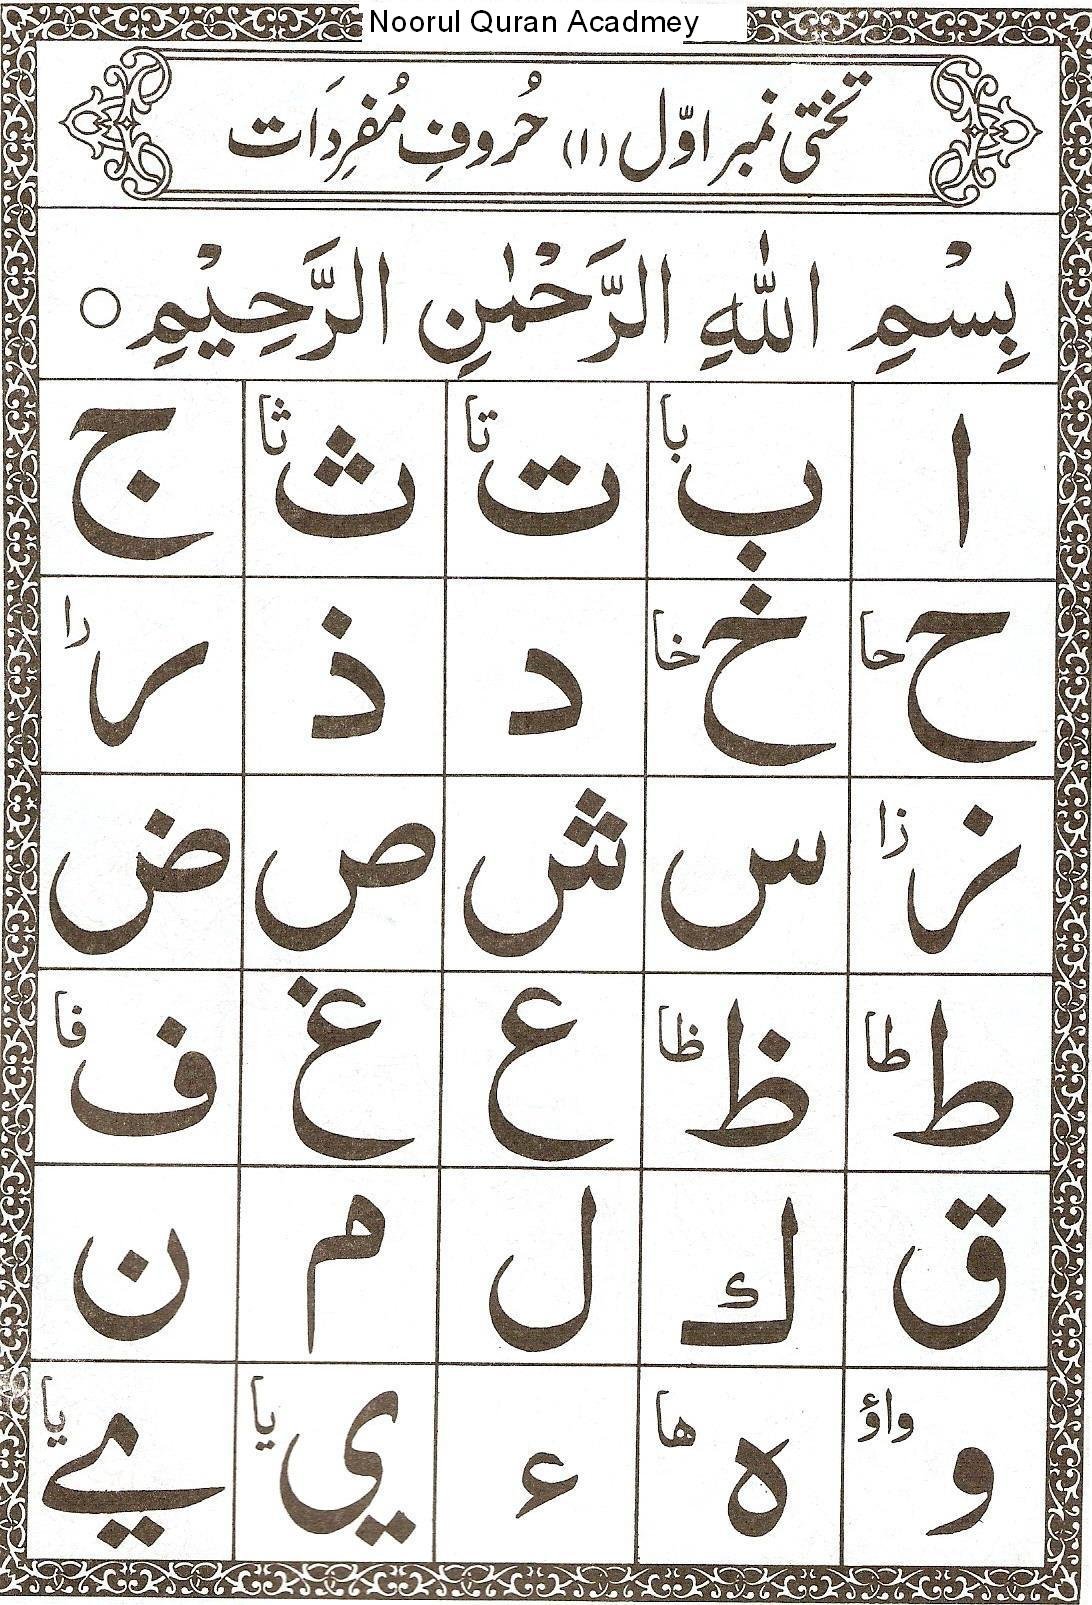 Noorul Quran Acadmey
تختی نمبر اوّل (۱) حُروفِ مُفرِدَات
بِسْمِ اللّٰهِ الرَّحْمٰنِ الرَّحِيْمِ ○
ا ب با ت تا ث ثا ج
ح حا خ خا د ذ ر را
ز زا س ش ص ض
ط طا ظ ظا ع غ ف فا
ق ك ل م ن
و واؤ ه ها ء ي يا ے يا